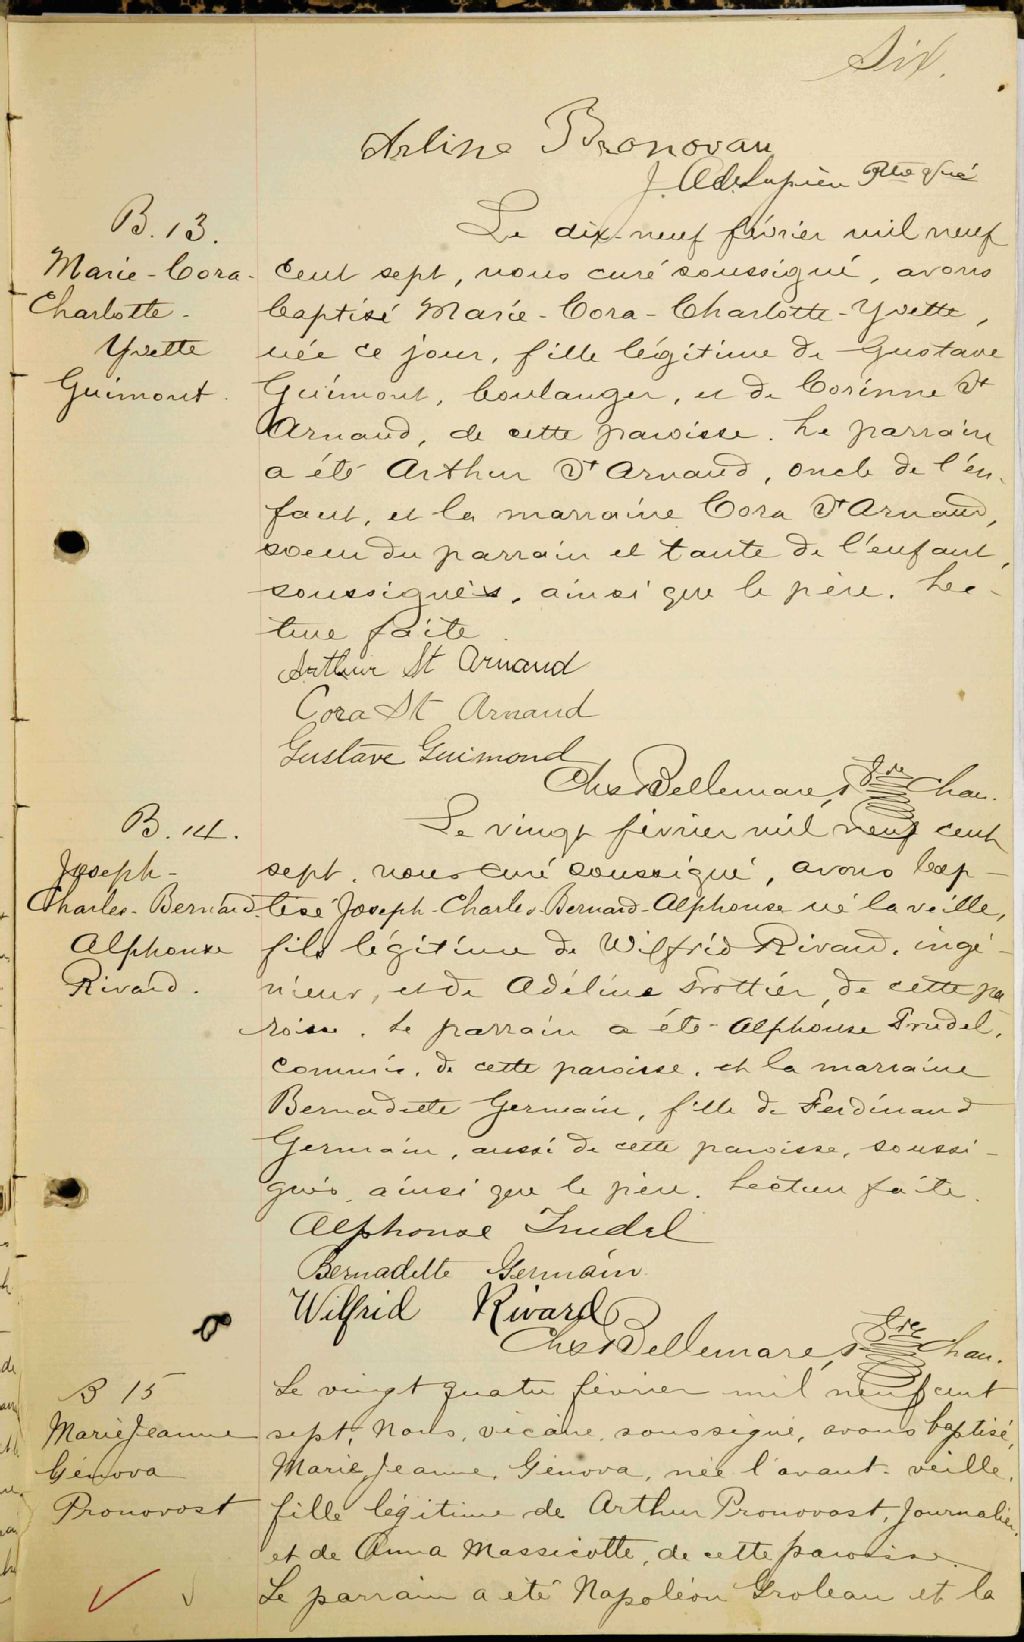 Six.
Arline Bronovau
J. Ad. Lupien Ptre Curé
B. 13.
Marie-Cora-
Charlotte-
Yvette
Guimont.
Le dix-neuf février mil neuf
cent sept, nous curé soussigné, avons
baptisé Marie-Cora-Charlotte-Yvette,
née ce jour, fille légitime de Gustave
Guimont, boulanger, et de Corinne St
Arnaud, de cette paroisse. Le parrain
a été Arthur St Arnaud, oncle de l'en-
fant, et la marraine Cora St Arnaud,
soeur du parrain et tante de l'enfant,
soussignés, ainsi que le père. Lec-
ture faite.
Arthur St Arnaud
Cora St Arnaud
Gustave Guimond
Chs Bellemare, Ptre Chan.
B. 14.
Joseph-
Charles-Bernard-
Alphonse
Rivard.
Le vingt février mil neuf cent
sept, nous curé soussigné, avons bap-
tisé Joseph-Charles-Bernard-Alphonse né la veille,
fils légitime de Wilfrid Rivard, ingé-
nieur, et de Adéline Trottier, de cette pa
roisse. Le parrain a été Alphonse Trudel,
commis, de cette paroisse, et la marraine
Bernadette Germain, fille de Ferdinand
Germain, aussi de cette paroisse, soussi-
gnés, ainsi que le père. Lecture faite.
Alphonse Trudel
Bernadette Germain
Wilfrid Rivard
Chs Bellemare, Ptre Chan.
B 15
Marie Jeanne
Génova
Pronovost
Le vingt quatre février mil neuf cent
sept, Nous, vicaire, soussigné, avons baptisé,
Marie, Jeanne, Génova, née l'avant-veille,
fille légitime de Arthur Pronovost, Journalier,
et de Anna Massicotte, de cette paroisse.
Le parrain a été Napoléon Groleau et la